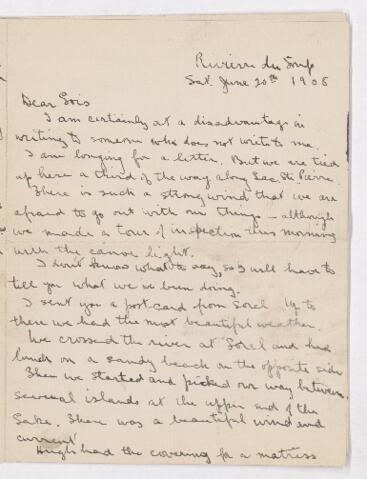 Rivière du Loup
Sat. June 20th 1908
Dear Lois
I am certainly at a disadvantage in
writing to someone who does not write to me.
I am longing for a letter. But we are tied
up here a third of the way along Lac St. Pierre
There is such a strong wind that we are
afraid to go out with our things – although
we made a tour of inspection this morning
with the canoe light.
I don't know what to say, so I will have to
tell you what we've been doing.
I sent you a post-card from Sorel. Up to
there we had the most beautiful weather.
We crossed the river at Sorel and had
lunch on a sandy beach on the opposite side
Then we started and picked our way between
several islands at the upper end of the
Lake. There was a beautiful wind and
current
Hugh had the covering for a matress